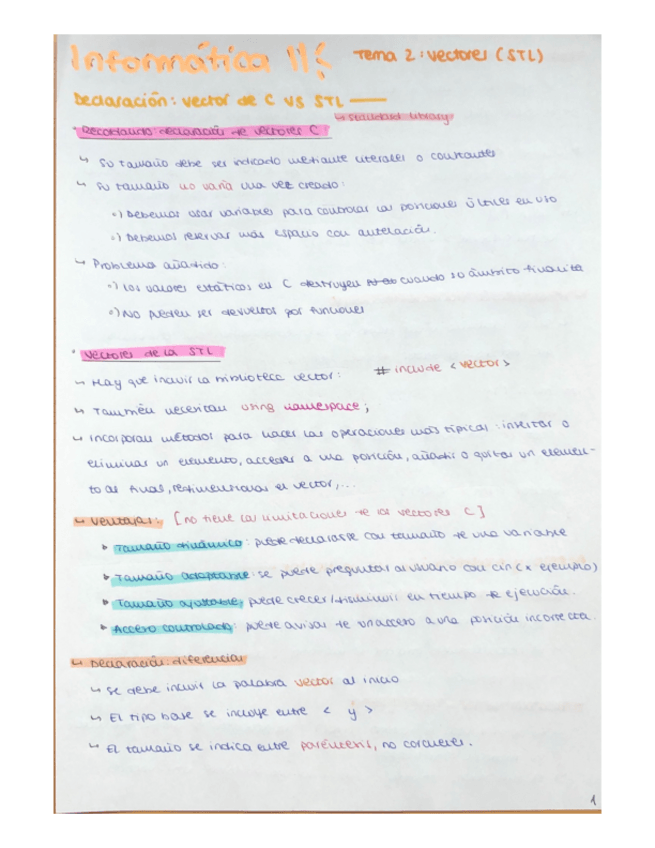 Informática II:
Tema 2: vectores (STL)
Declaración: vector de C vs STL
↳ Standard library
· Recordando declaración de vectores C
↳ Su tamaño debe ser indicado mediante literales o constantes
↳ Su tamaño no varía una vez creado:
·) Debemos usar variables para controlar las posiciones útiles en uso
·) Debemos reservar más espacio con antelación.
↳ Problema añadido:
·) los valores estáticos en C destruyen cuando su ámbito finaliza
·) No pueden ser devueltos por funciones
· Vectores de la STL
↳ Hay que incluir la biblioteca vector: # include <vector>
↳ También necesitan using namespace;
↳ Incorporan métodos para hacer las operaciones más típicas: insertar o
eliminar un elemento, acceder a una posición, añadir o quitar un elemen-
to al final, redimensionar el vector,...
↳ Ventajas: [no tiene las limitaciones de los vectores C]
▸ Tamaño dinámico: puede declararse con tamaño de una variable
▸ Tamaño adaptable: se puede preguntar al usuario con cin (x ejemplo)
▸ Tamaño ajustable: puede crecer/disminuir en tiempo de ejecución.
▸ Acceso controlado: puede avisar de un acceso a una posición incorrecta.
↳ Declaración: diferencias
↳ Se debe incluir la palabra vector al inicio
↳ El tipo base se incluye entre < y >
↳ El tamaño se indica entre paréntesis, no corchetes.
1